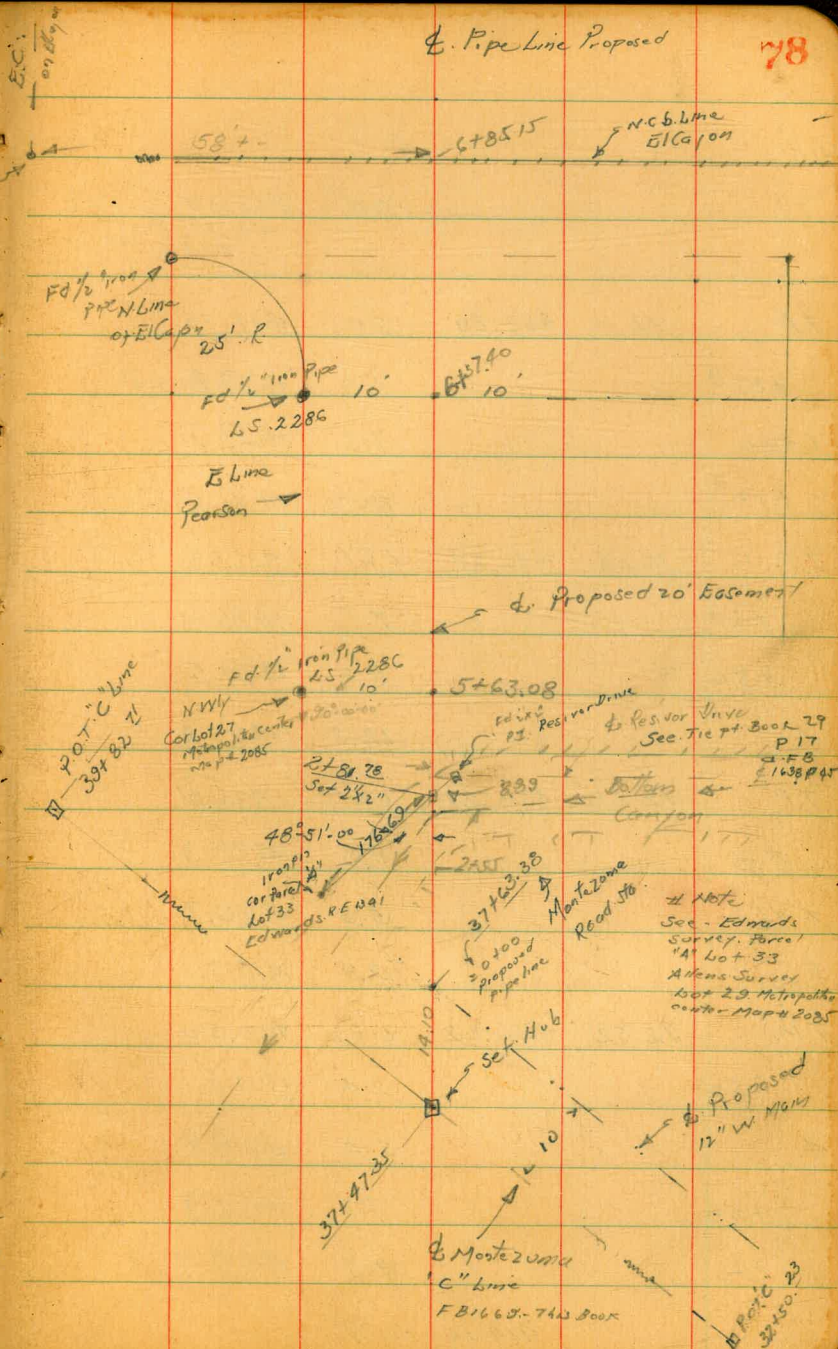 78
℄. Pipe Line Proposed
E.C.
58' +-
6+85.15
N. Cb. Line
El Cajon
Fd ½" Iron
Pipe N Line
of El Cajon
25'. R
Fd ½" Iron Pipe
L.S. 2286
10'
6+37.40
10'
E Line
Pearson
℄. Proposed 20' Easement
Fd. ½" Iron Pipe
L.S. 2286
10'
5+63.08
NWly
Cor Lot 27
Metropolitan Center
Map # 2085
90°-00'-00"
P.O.T. "C" Line
39+82.71
P.I. Resivor Drive
℄ Resivor Drive
See. Tie pt. Book 29
P 17
2+81.78
Set 2"x2"
Bottom
Canyon
48°-51'-00
176.69
2+55
Iron Pin
cor Parcel "A"
Lot 33
Edwards. R.E 1391
37+63.38
= 0+00
proposed
pipeline
Montezuma
Road Sta
# Note
See - Edwards
Survey. Parcel
"A" Lot 33
Allens Survey
Lot 29 Metropolitan
center Map # 2085
14.10
Set Hub
℄ Proposed
12" W. Main
10
37+47.35
℄ Montezuma
"C" Line
This Book
P.O.T. "C"
32+50.23